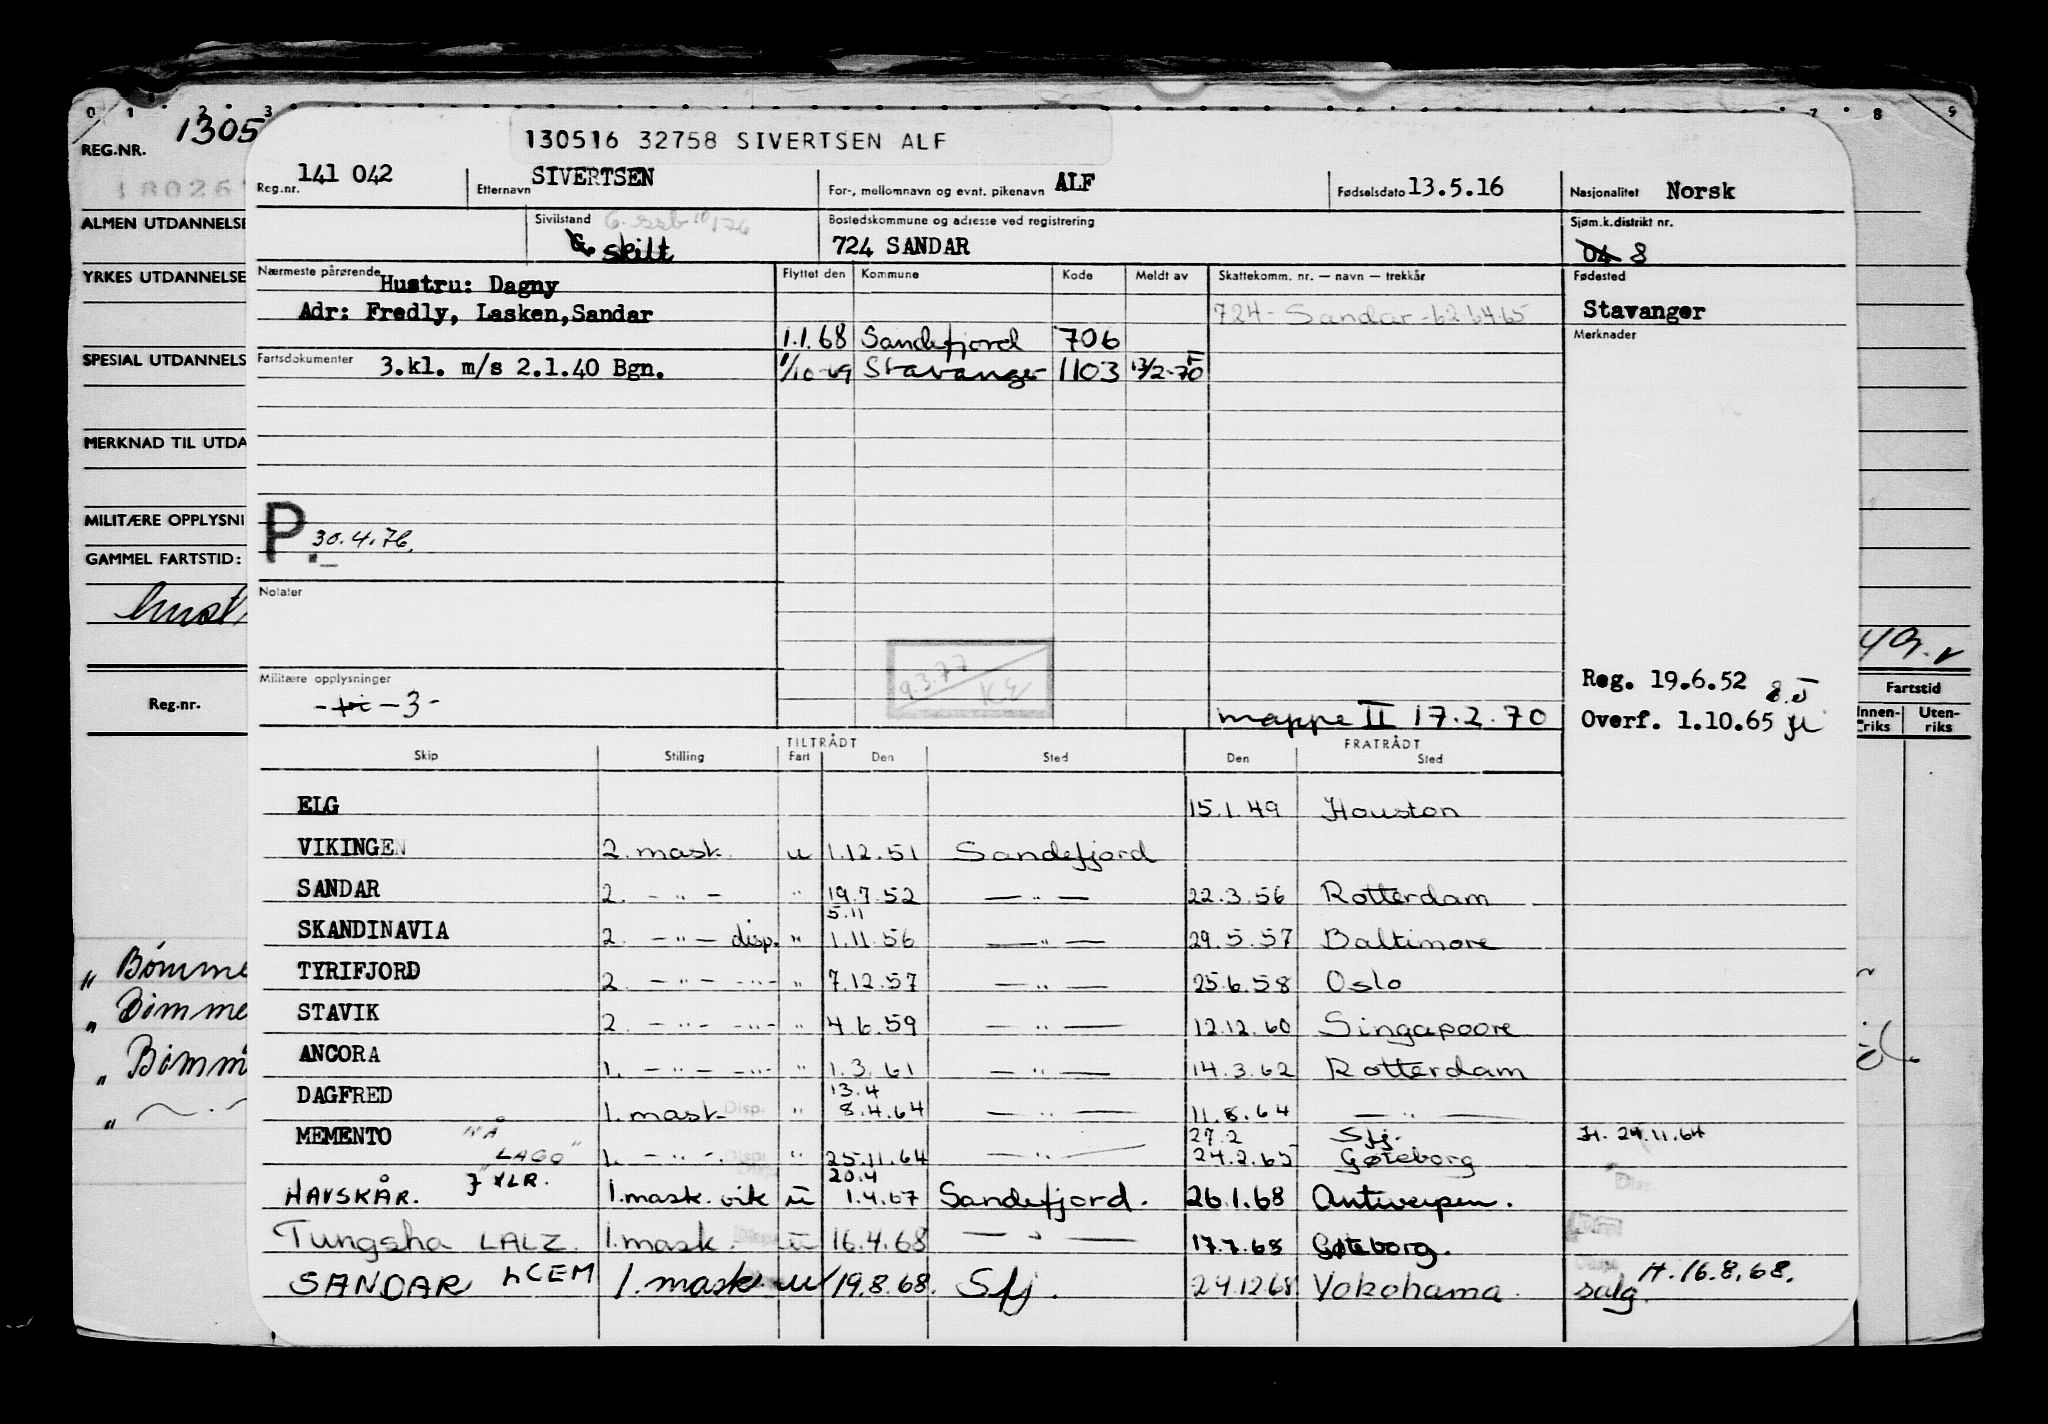 130516 32758 SIVERTSEN ALF
REG.NR. 1305
Reg.nr. 141 042 Etternavn SIVERTSEN For-, mellomnavn og evnt. pikenavn ALF Fødselsdato 13.5.16 Nasjonalitet Norsk
ALMEN UTDANNELSE
Sivilstand skilt Bostedskommune og adresse ved registrering 724 SANDAR Sjøm.k.distrikt nr. 04 8
YRKES UTDANNELSE
Nærmeste pårørende Hustru: Dagny Flyttet den Kommune Kode Meldt av Skattekomm. nr. — navn — trekkår Fødested
Adr: Fredly, Lasken, Sandar 724 - Sandar - 62 64 65 Stavanger
1.1.68 Sandefjord 706 Merknader
SPESIAL UTDANNELS
Fartsdokumenter 3.kl. m/s 2.1.40 Bgn. 1/10-69 Stavanger 1103 13/2-70
MERKNAD TIL UTDA
MILITÆRE OPPLYSNI
P. 30.4.76.
GAMMEL FARTSTID:
Notater
9.3.77
Militære opplysninger
- 3 -
mappe II 17.2.70
Reg. 19.6.52
Overf. 1.10.65
Reg.nr.
Fartstid
Innen-riks Uten-riks
TILTRÅDT FRATRÅDT
Skip Stilling Fart Den Sted Den Sted
ELG 15.1.49 Houston
VIKINGEN 2. mask. u 1.12.51 Sandefjord
SANDAR 2. - " - " 19.7.52 — " — 22.3.56 Rotterdam
5.11
SKANDINAVIA 2. - " - disp. " 1.11.56 — " — 29.5.57 Baltimore
Bømme
TYRIFJORD 2. - " - - " - " 7.12.57 — " — 25.6.58 Oslo
Bømme
STAVIK 2. - " - - " - " 4.6.59 — " — 12.12.60 Singapoore
Bømm
ANCORA 1. - " - - " - " 1.3.61 — " — 14.3.62 Rotterdam
13.4
DAGFRED 1. mask. Disp. " 8.4.64 — " — 11.8.64 — " —
MEMENTO "NÅ 27.2 Sfj. H. 24.11.64
LAGO" 1. - " - " 25.11.64 — " — 24.2.65 Gøteborg
20.4
HAVSKÅR. JXLR. 1. mask. vik u 1.4.67 Sandefjord. 26.1.68 Antwerpen.
Tungsha LALZ. 1. mask. u 16.4.68 — " — 17.7.68 Gøteborg.
SANDAR LCEM 1. mask u 19.8.68. Sfj. 24.12.68 Yokohama. salg. H. 16.8.68.